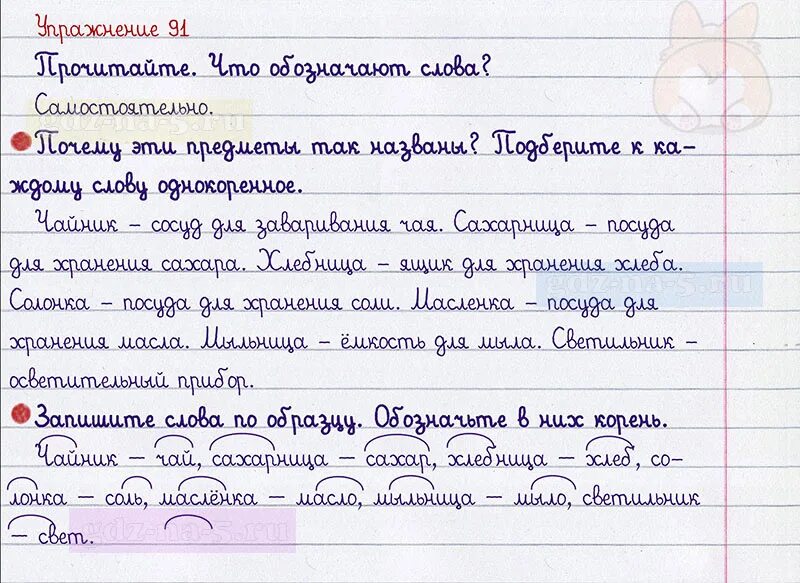 Упражнение 91
Прочитайте. Что обозначают слова?
Самостоятельно.
Почему эти предметы так названы? Подберите к ка-
ждому слову однокоренное.
Чайник – сосуд для заваривания чая. Сахарница – посуда
для хранения сахара. Хлебница – ящик для хранения хлеба.
Солонка – посуда для хранения соли. Масленка – посуда для
хранения масла. Мыльница – ёмкость для мыла. Светильник –
осветительный прибор.
Запишите слова по образцу. Обозначьте в них корень.
Чайник – чай, сахарница – сахар, хлебница – хлеб, со-
лонка – соль, маслёнка – масло, мыльница – мыло, светильник
– свет.
gdz-na-5.ru
gdz-na-5.ru
gdz-na-5.ru